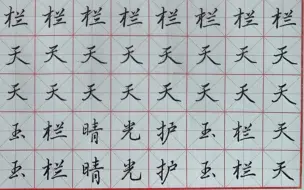 栏栏栏栏栏栏栏栏
天天天天天天天天
天天天天天天天天
玉栏晴光护玉栏天
玉栏晴光护玉栏天